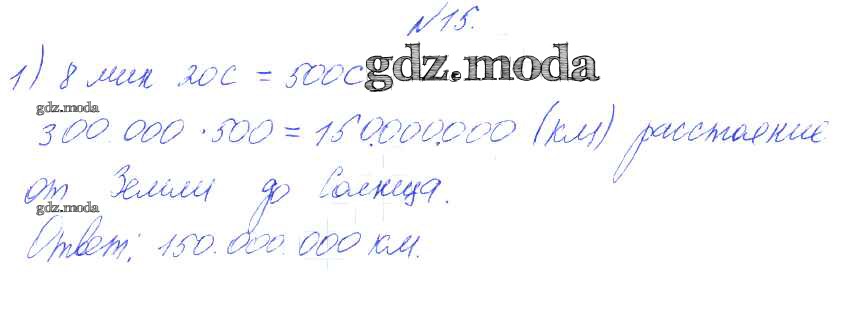 №15.
1) 8 мин 20с = 500с gdz.moda
gdz.moda
300.000 · 500 = 150.000.000 (км) расстояние
от Земли до Солнца.
gdz.moda
Ответ: 150.000.000 км.